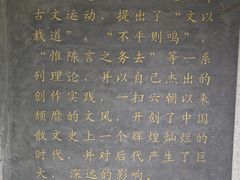 古文运动，提出了“文以
载道”、“不平则鸣”，
“惟陈言之务去”等一系
列理论，并以自己杰出的
创作实践，一扫六朝以来
颓靡的文风，开创了中国
散文史上一个辉煌灿烂的
时代，并对后代产生了巨
大、深远的影响。